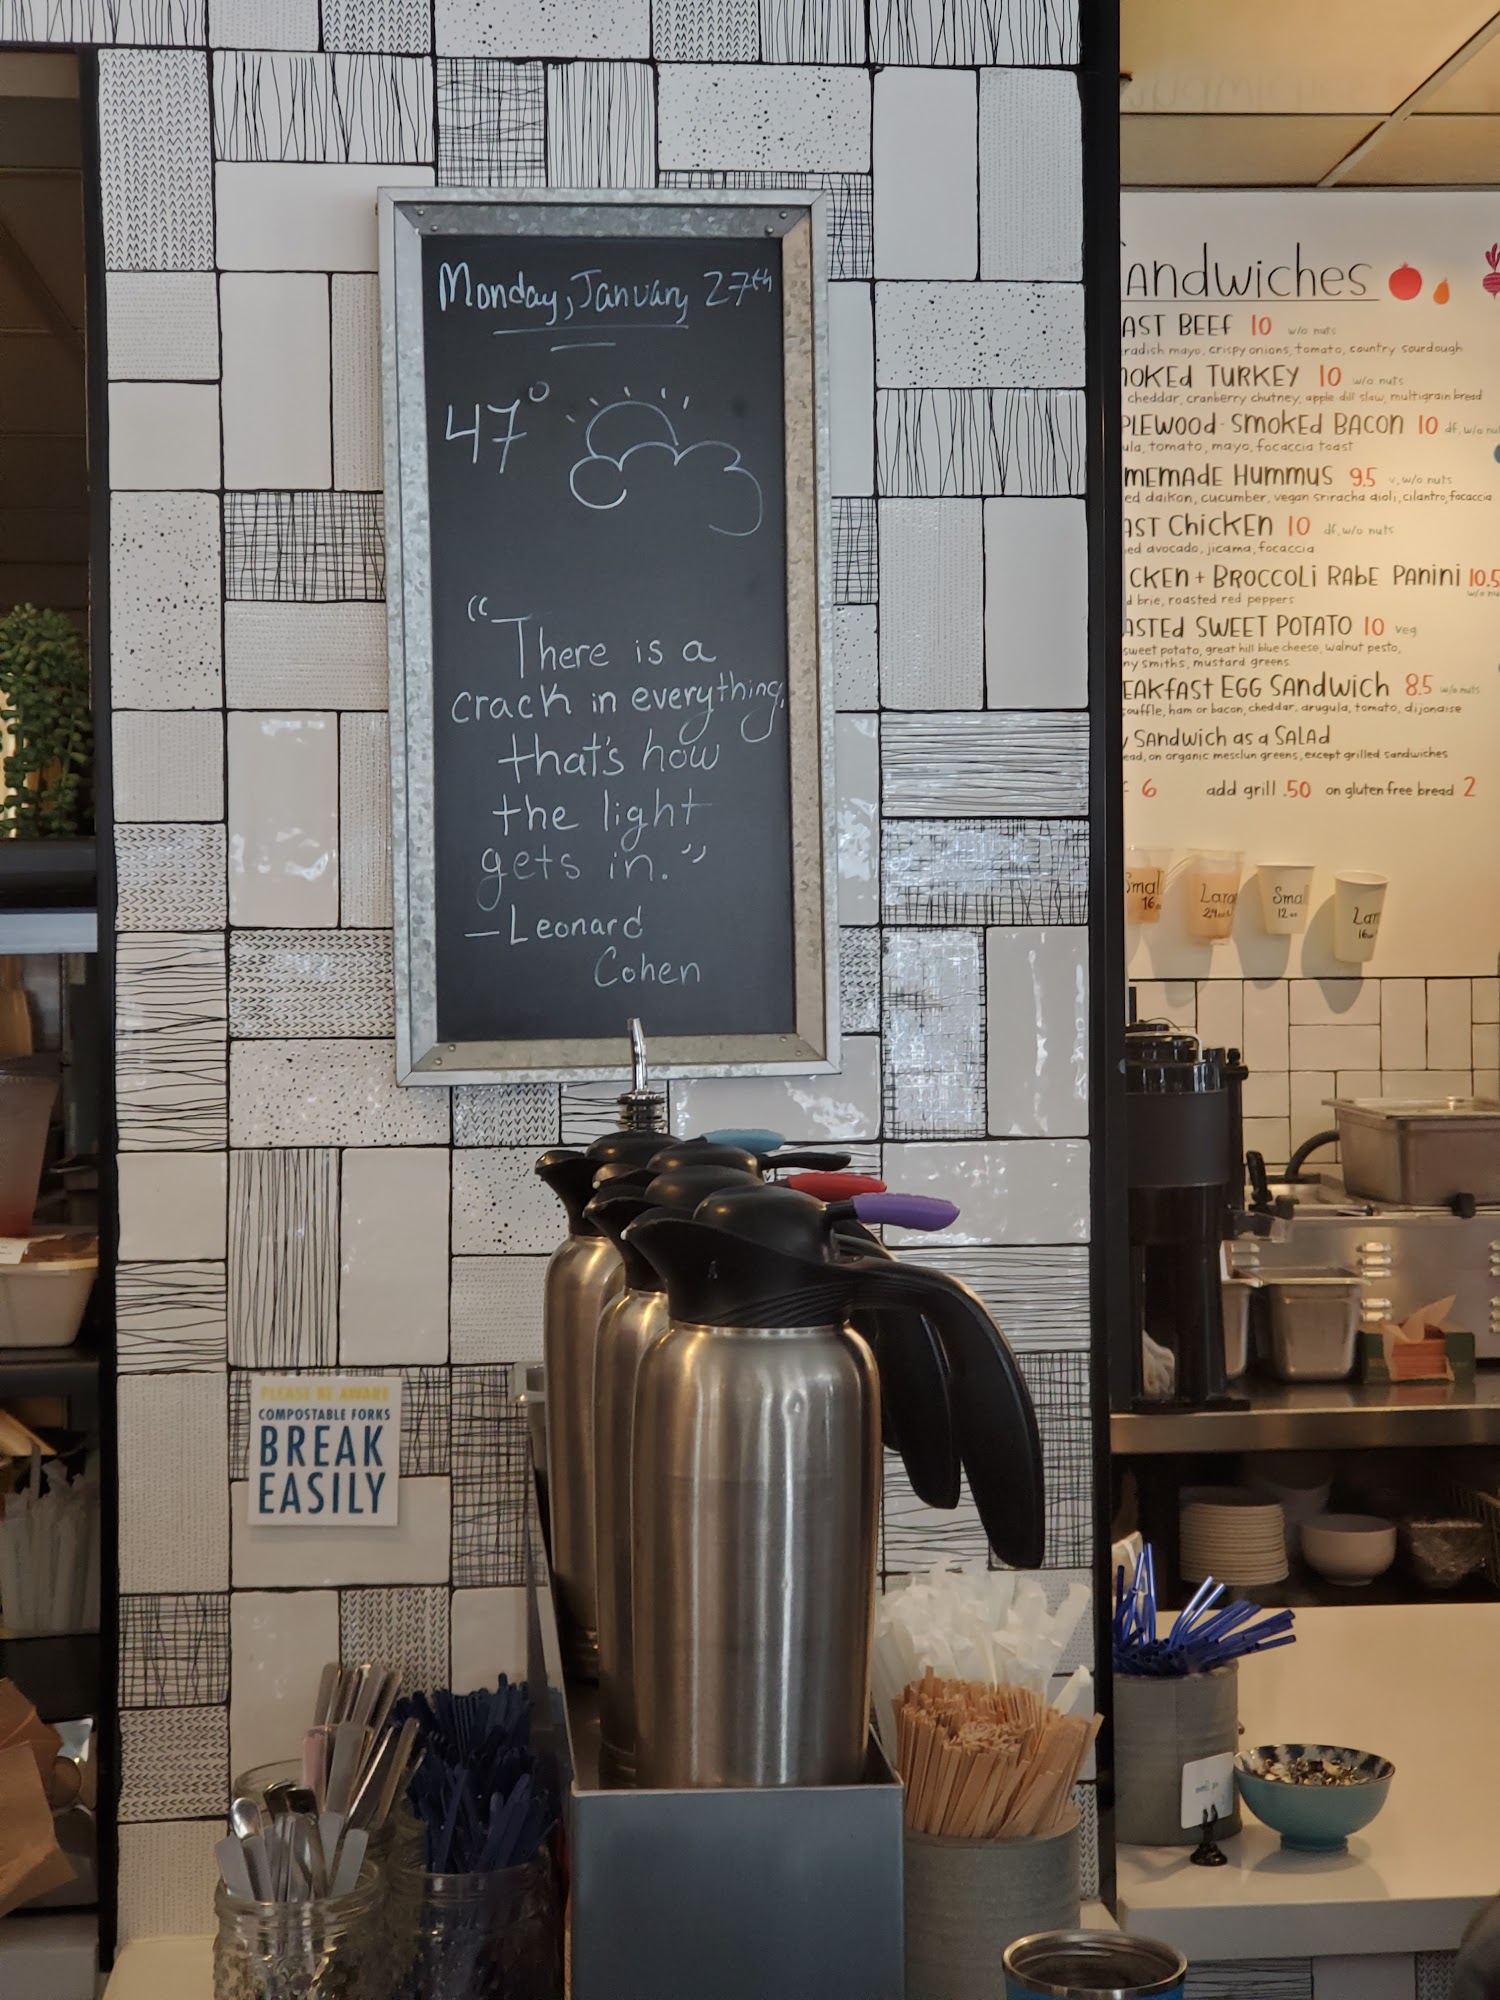 Monday, January 27th
47°
"There is a
crack in everything,
that's how
the light
gets in."
—Leonard
Cohen
PLEASE BE AWARE
COMPOSTABLE FORKS
BREAK
EASILY
andwiches
AST BEEF 10 w/o nuts
radish mayo, crispy onions, tomato, country sourdough
OKEd TURKEY 10 w/o nuts
cheddar, cranberry chutney, apple dill slaw, multigrain bread
PLEWOOd-SMOKEd BACON 10 df, w/o nu
ula, tomato, mayo, focaccia toast
MEMAdE HUMMUS 9.5 v, w/o nuts
ed daikon, cucumber, vegan sriracha aioli, cilantro, focaccia
AST ChicKEN 10 df, w/o nuts
ed avocado, jicama, focaccia
CKEN + BROCCOLi RAbE PANiNi 10.5
w/o nu
d brie, roasted red peppers
ASTEd SWEET POTATO 10 veg
sweet potato, great hill blue cheese, walnut pesto,
ny smiths, mustard greens
EAKfAST EGG SANdwich 8.5 w/o nuts
ouffle, ham or bacon, cheddar, arugula, tomato, dijonaise
y SANdwich as a SALAd
ead, on organic mesclun greens, except grilled sandwiches
6 add grill .50 on gluten free bread 2
Smal
16
Larg
24oz
Smal
12oz
Lar
16oz